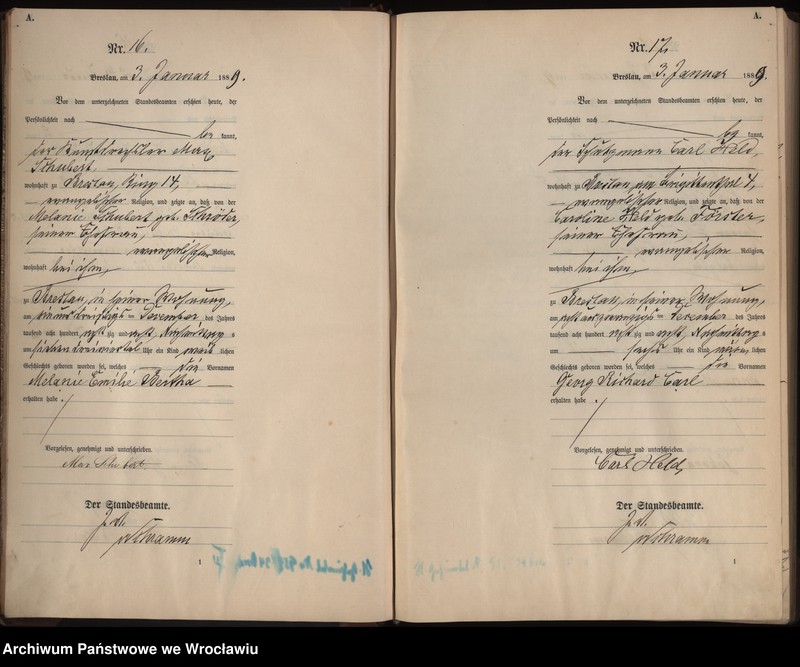 A.
Nr. 16.
Breslau, am 3. Januar 1889.
Vor dem unterzeichneten Standesbeamten erschien heute, der
Persönlichkeit nach
be kannt,
der Kunstdrechsler Max
Schubert,
wohnhaft zu Breslau, Ring 14,
evangelischer Religion, und zeigte an, daß von der
Melanie Schubert geb. Schröder,
seiner Ehefrau,
evangelischer Religion,
wohnhaft bei ihm,
zu Breslau, in seiner Wohnung,
am einunddreißigsten Dezember des Jahres
tausend acht hundert acht zig und acht, Nachmittags
um sieben dreiviertel Uhr ein Kind weib lichen
Geschlechts geboren worden sei, welches die Vornamen
Melanie Emilie Bertha
erhalten habe.
Vorgelesen, genehmigt und unterschrieben.
Max Schubert
Der Standesbeamte.
J. V.
Schramm
1
A.
Nr. 17.
Breslau, am 3. Januar 1889.
Vor dem unterzeichneten Standesbeamten erschien heute, der
Persönlichkeit nach
be kannt,
der Schutzmann Carl Held,
wohnhaft zu Breslau, am Brigittenthal 4,
evangelischer Religion, und zeigte an, daß von der
Caroline Held geb. Förster,
seiner Ehefrau,
evangelischer Religion,
wohnhaft bei ihm,
zu Breslau, in seiner Wohnung,
am achtundzwanzigsten Dezember des Jahres
tausend acht hundert acht zig und acht, Nachmittags
um sechs Uhr ein Kind männ lichen
Geschlechts geboren worden sei, welches die Vornamen
Georg Richard Carl
erhalten habe.
Vorgelesen, genehmigt und unterschrieben.
Carl Held,
Der Standesbeamte.
J. V.
Schramm
1
Archiwum Państwowe we Wrocławiu